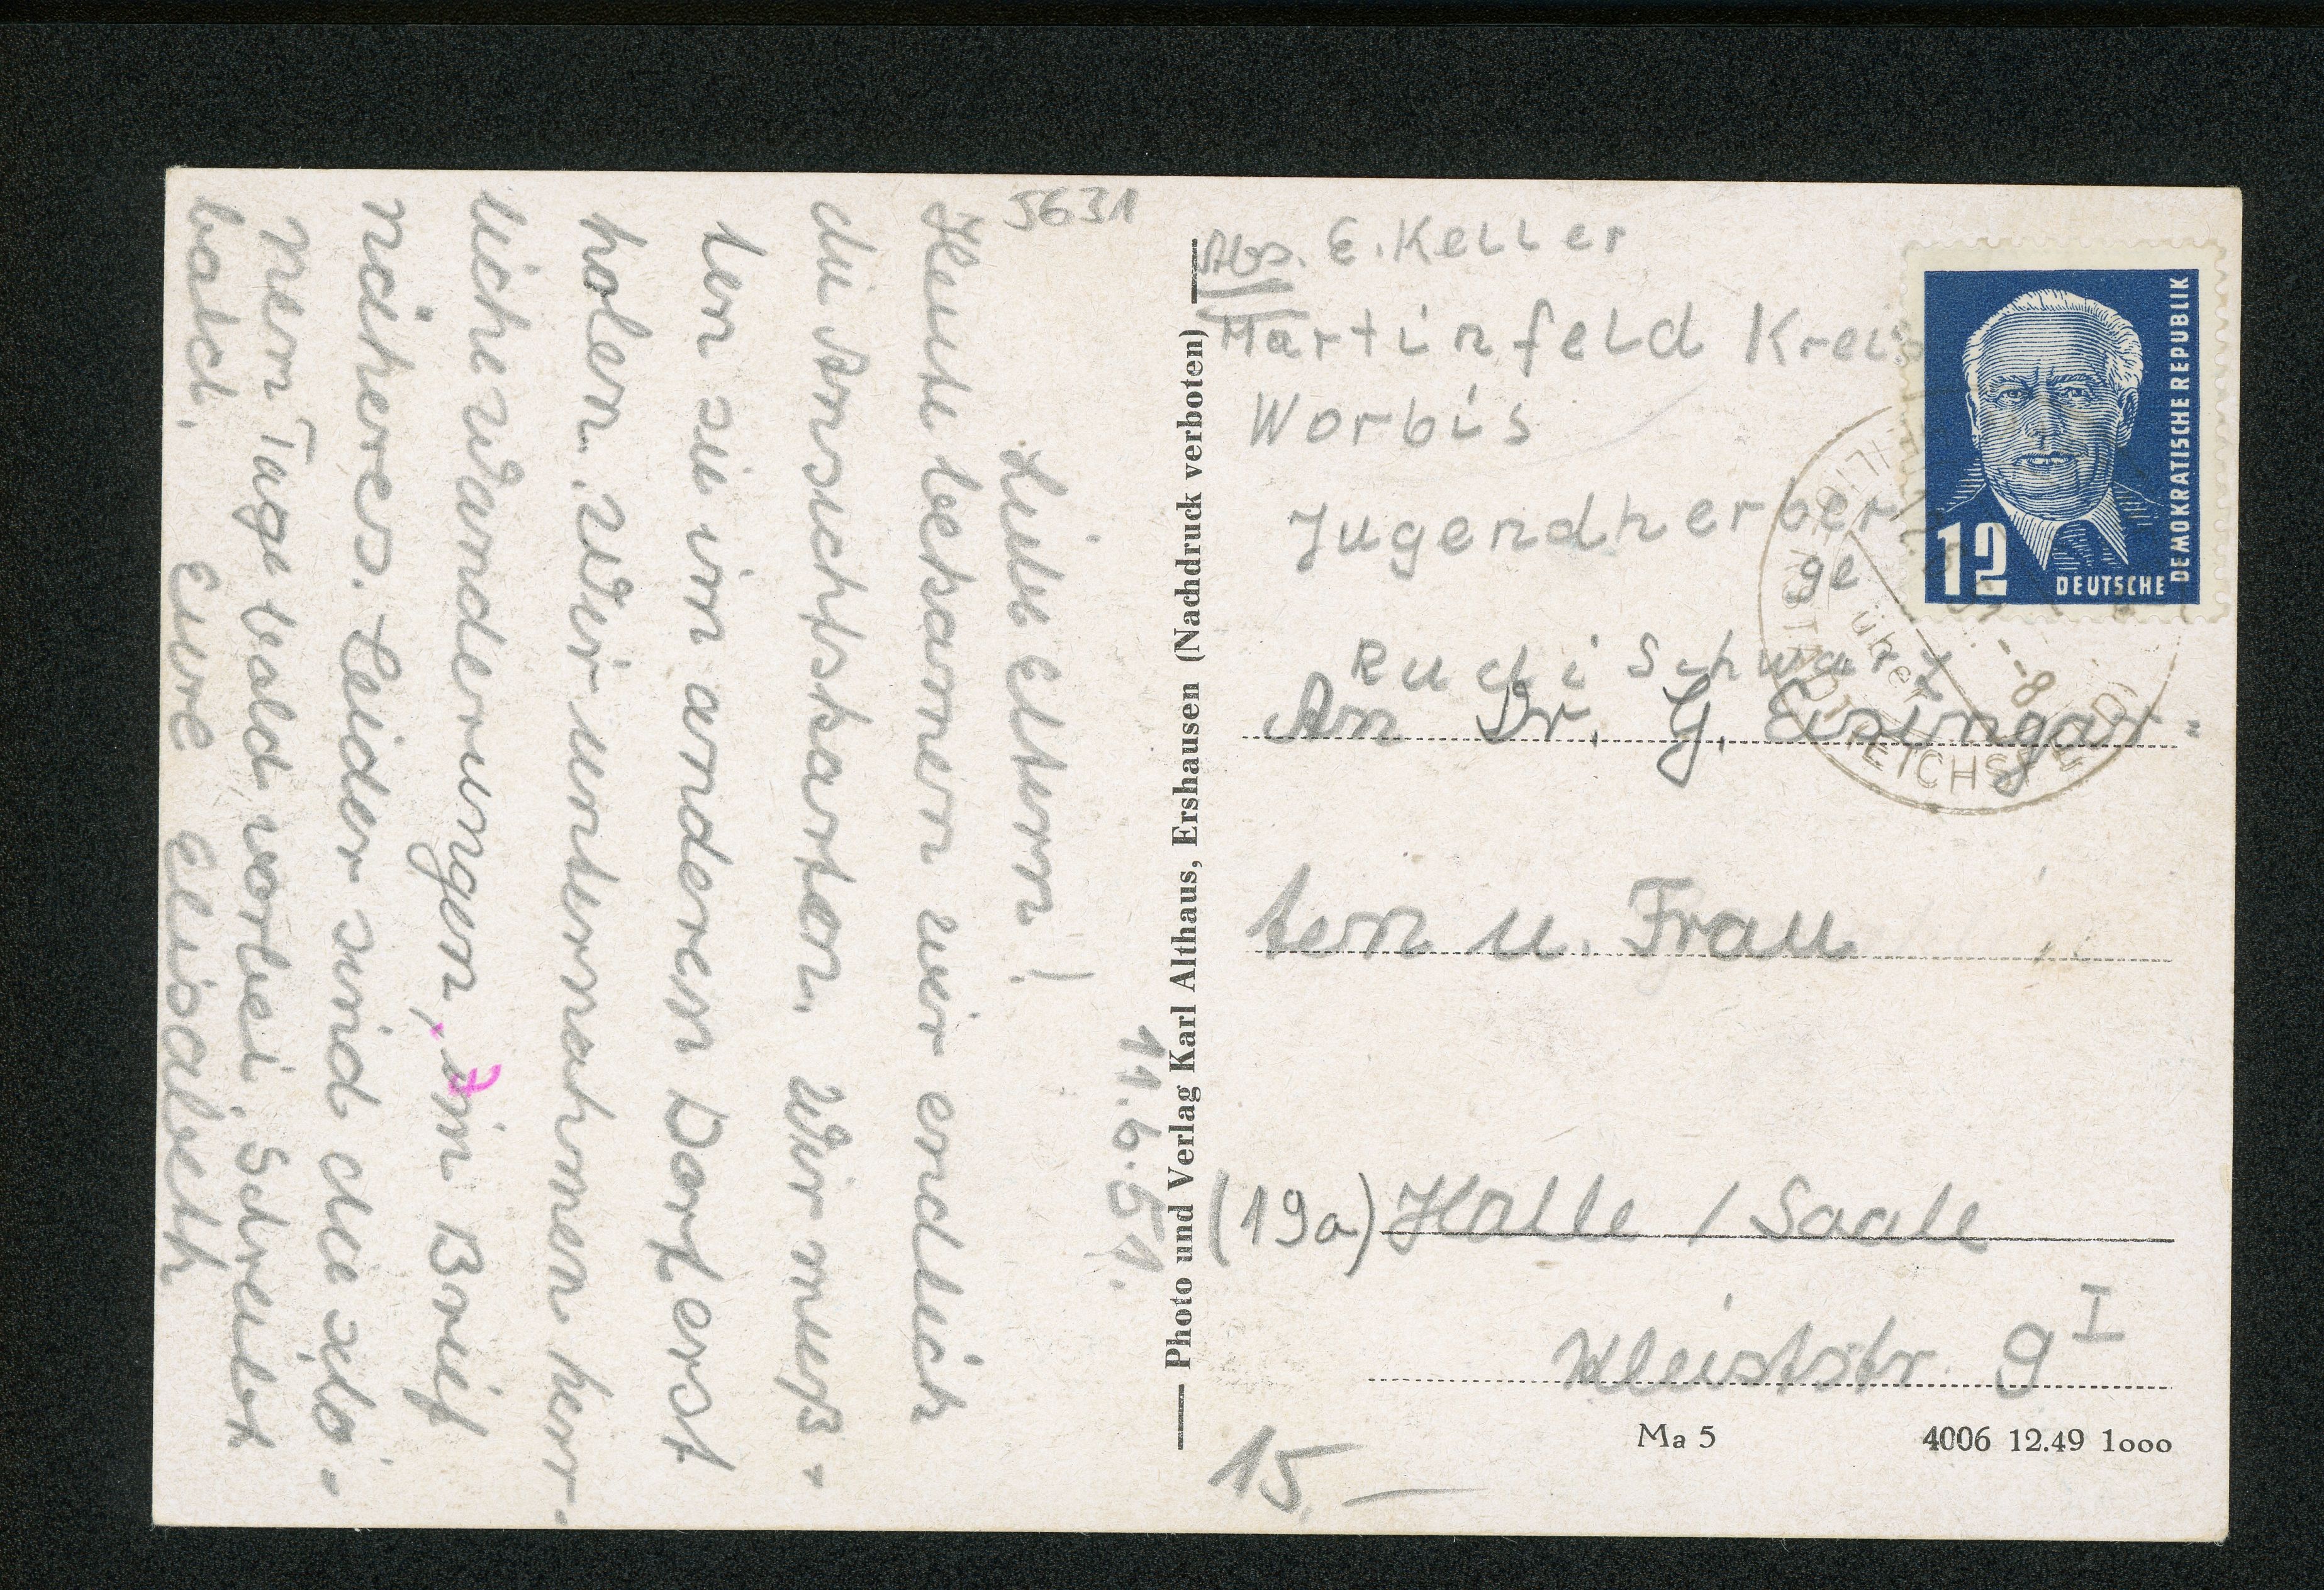 5631
11.6.51.
Liebe Eltern!
Heute bekamen wir endlich
die Ansichtskarten. Wir muß-
ten sie im anderen Dorf erst
holen. Wir unternahmen herr-
liche Wanderungen, im Brief
näheres. Leider sind die schö-
nen Tage bald vorbei. Schreibt
bald.
Eure Elisabeth
Photo und Verlag Karl Althaus, Ershausen (Nachdruck verboten)
Abs. E. Keller
Martinfeld Kreis
Worbis
Jugendherber
ge
Rudi Schwarz
DEUTSCHE DEMOKRATISCHE REPUBLIK
12
über
An Dr. G. Eisingar-
ten u. Frau
(19a) Halle / Saale
Kleiststr. 9 I
Ma 5
4006 12.49 1000
15.—